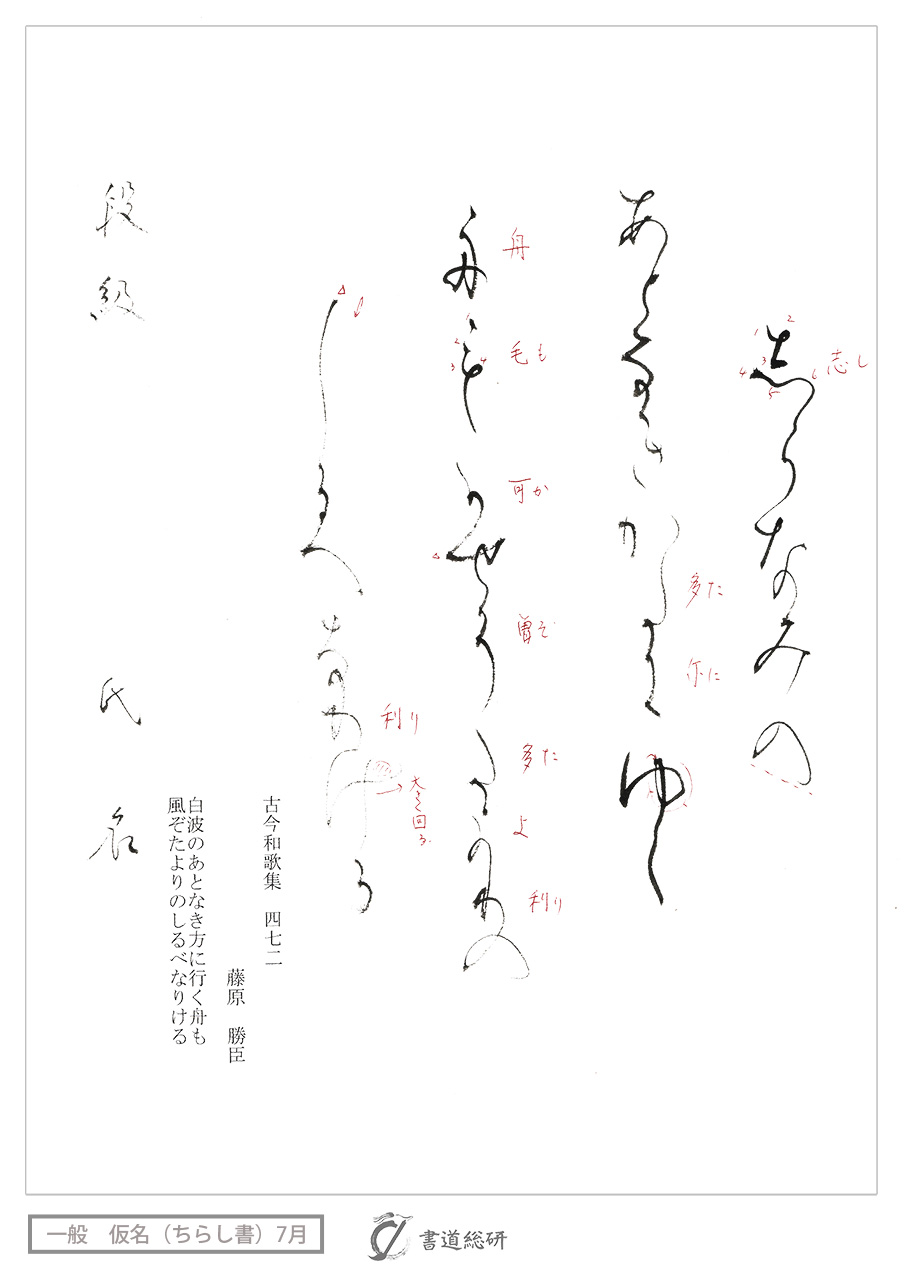 志らなみの
志し
あとなきか多尓ゆく
多た
尓に
舟毛可せ曽多よ利の
舟
毛も
可か
曽そ
多た
よ
利り
しるへな利ける
利り
大きく回る
古今和歌集 四七二
藤原 勝臣
白波のあとなき方に行く舟も
風ぞたよりのしるべなりける
段級 氏名
一般 仮名（ちらし書）7月
書道総研